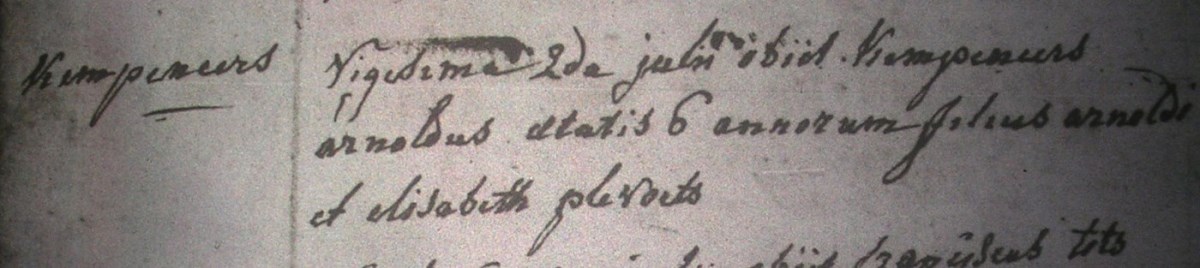 Kempeneers
Vigesima 2da julii obiit Kempeneers
arnoldus etatis 6 annorum filius arnoldi
et elisabeth plevoets
obiit franciscus tits